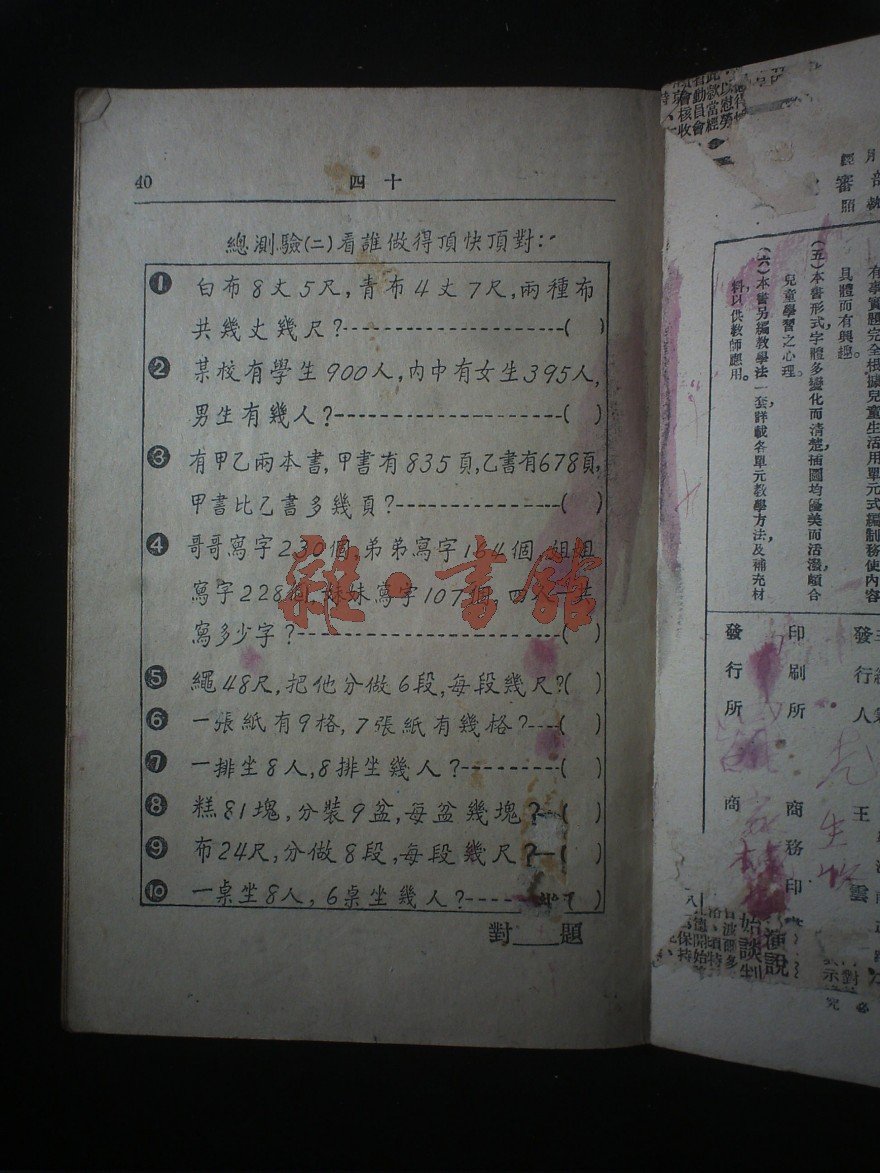 40
四十
總測驗(二)看誰做得頂快頂對:
❶ 白布8丈5尺,青布4丈7尺,兩種布
共幾丈幾尺?( )
❷ 某校有學生900人,內中有女生395人,
男生有幾人?( )
❸ 有甲乙兩本書,甲書有835頁,乙書有678頁,
甲書比乙書多幾頁?( )
❹ 哥哥寫字230個,弟弟寫字164個,姐姐
寫字228個,妹妹寫字107個,四人一共
寫多少字?( )
❺ 繩48尺,把他分做6段,每段幾尺?( )
❻ 一張紙有9格,7張紙有幾格?( )
❼ 一排坐8人,8排坐幾人?( )
❽ 糕81塊,分裝9盆,每盆幾塊?( )
❾ 布24尺,分做8段,每段幾尺?( )
❿ 一桌坐8人,6桌坐幾人?( )
對___題
雜·書館
有事實體完全根據兒童生活用單元式編制務使內容
具體而有興趣。
(五)本書形式字體多變化而清楚插圖均優美而活潑頗合
兒童學習之心理。
(六)本書另編教學法一套詳載各單元教學方法及補充材
料,以供教師應用。
發行人 王 雲
印刷所 商務印
發行所 商